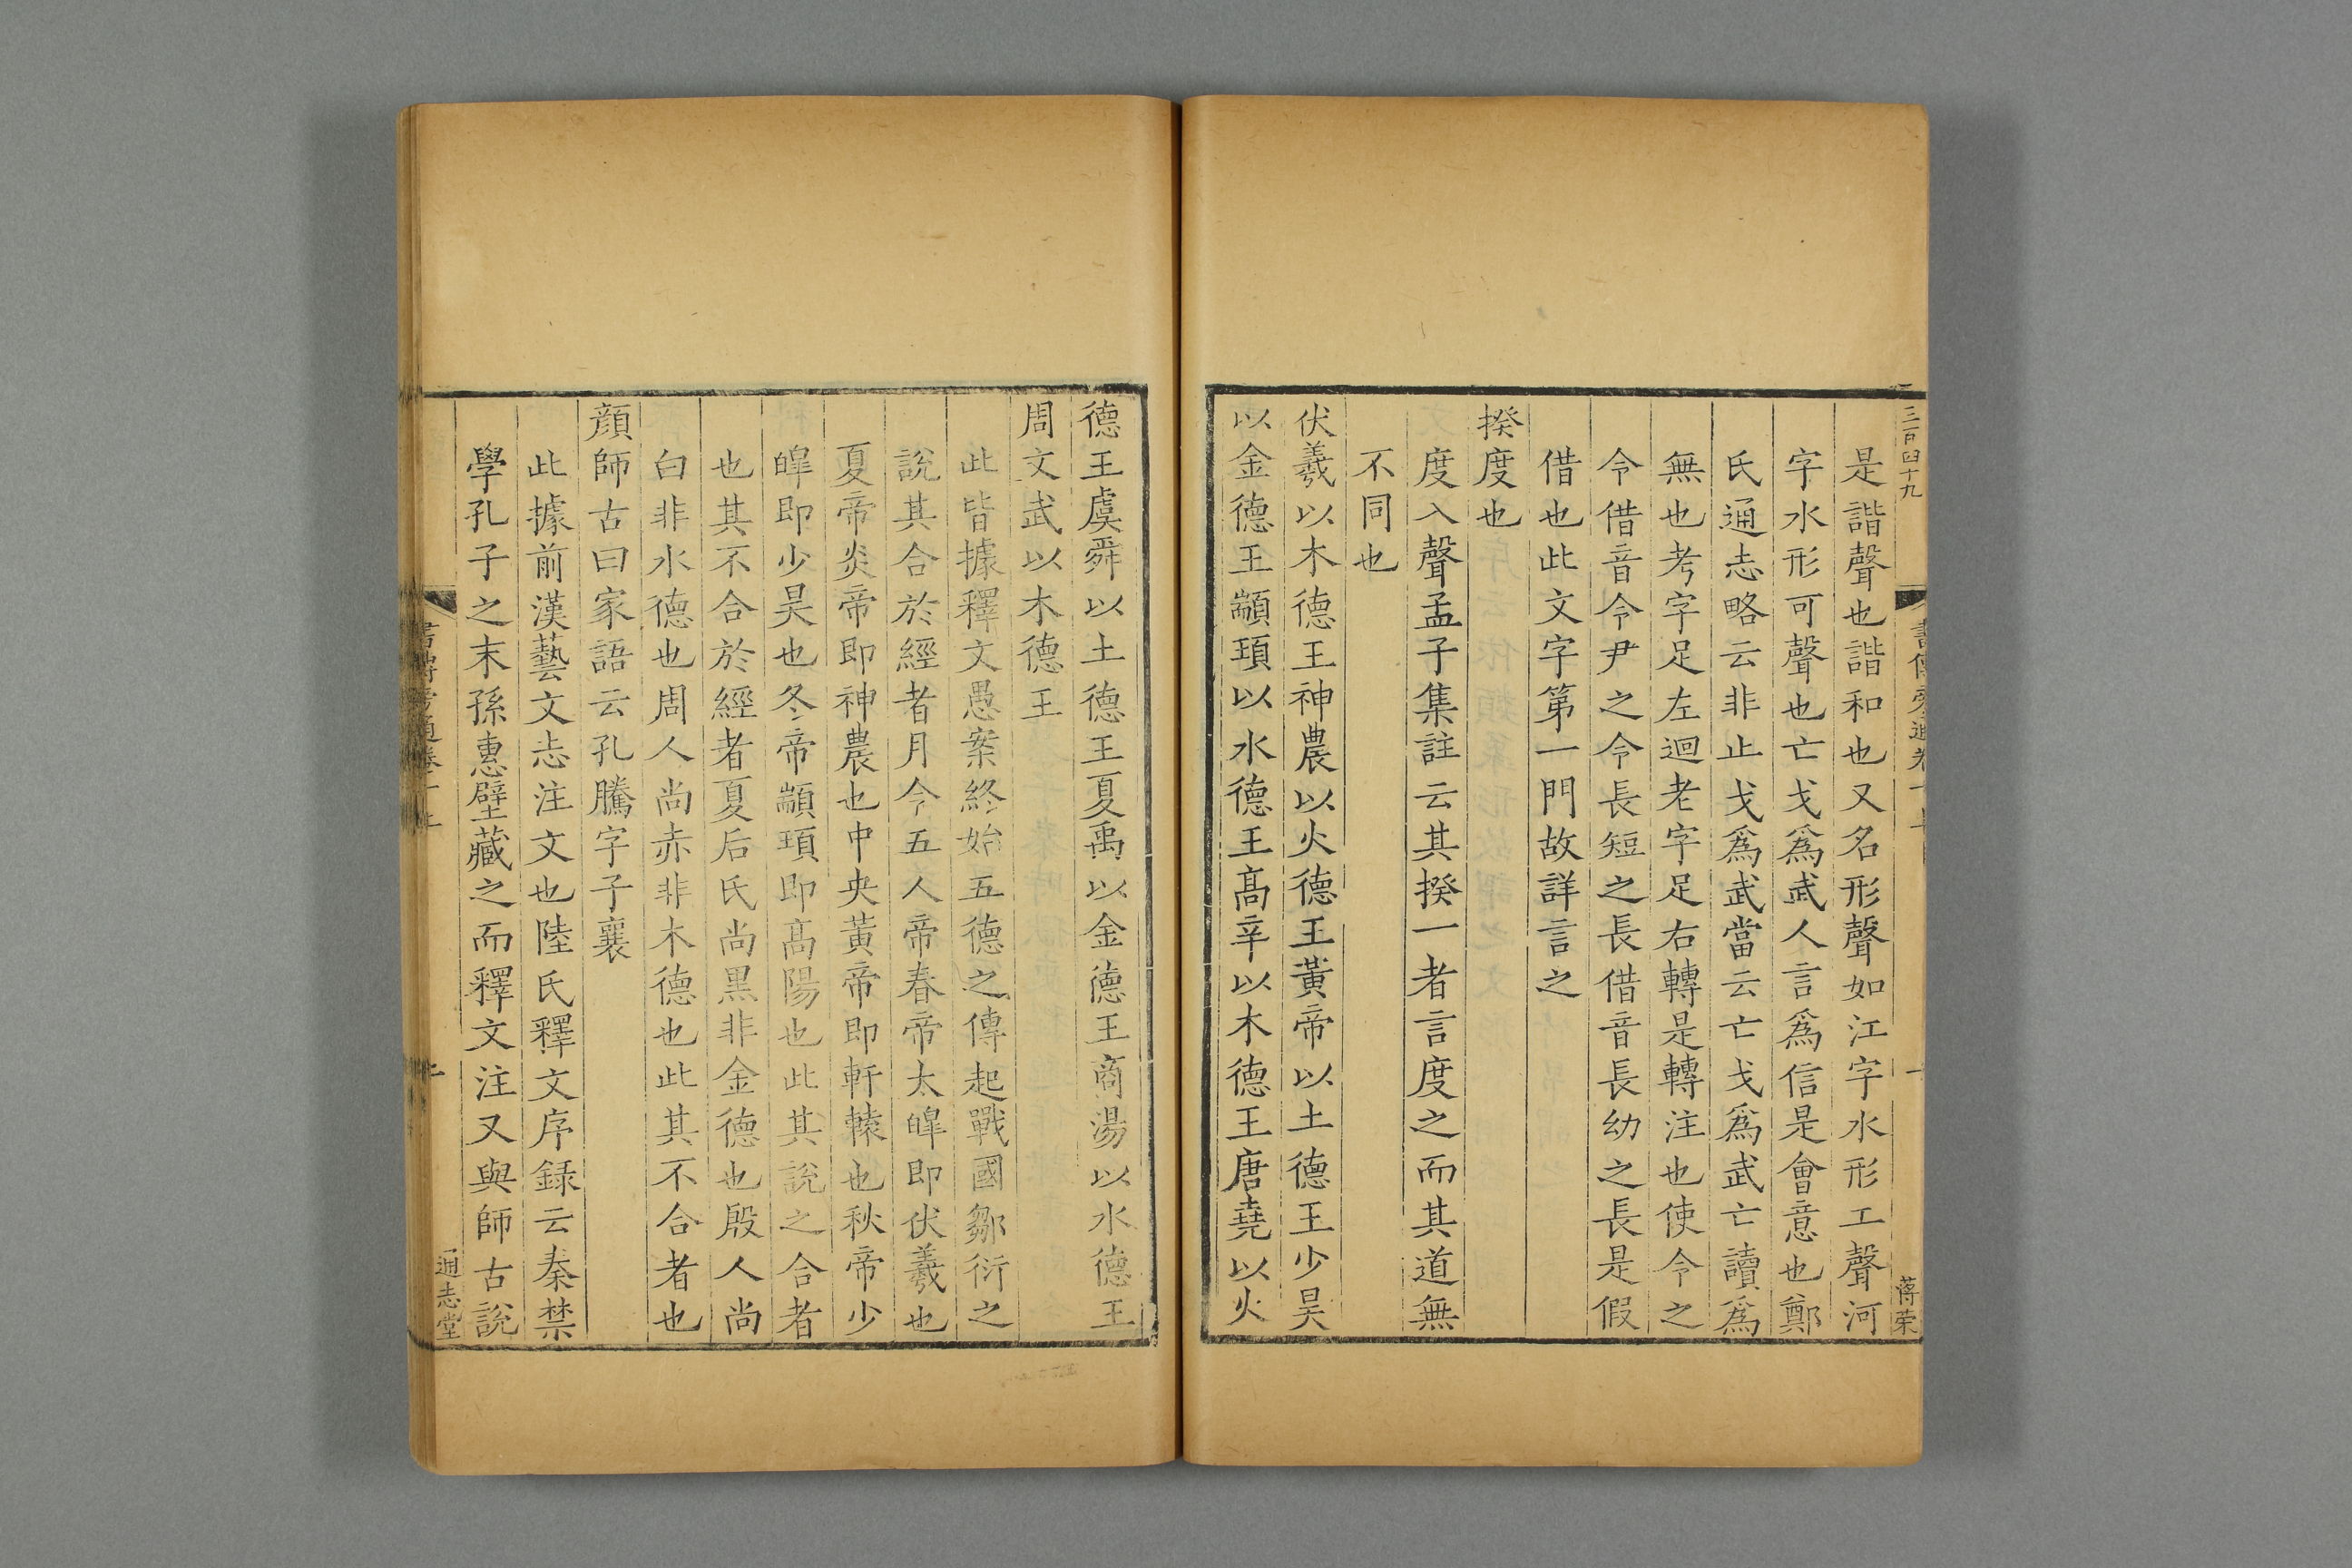 三百四十九
書傳旁通卷一上
一
蔣荣
是諧聲也諧和也又名形聲如江字水形工聲河
字水形可聲也亡戈爲武人言爲信是會意也鄭
氏通志略云非止戈爲武當云亡戈爲武亡讀爲
無也考字足左迴老字足右轉是轉注也使令之
令借音令尹之令長短之長借音長幼之長是假
借也此文字第一門故詳言之
揆度也
度入聲孟子集註云其揆一者言度之而其道無
不同也
伏羲以木德王神農以火德王黃帝以土德王少昊
以金德王顓頊以水德王高辛以木德王唐堯以火
德王虞舜以土德王夏禹以金德王商湯以水德王
周文武以木德王
此皆據釋文愚案終始五德之傳起戰國鄒衍之
說其合於經者月令五人帝春帝太皥即伏羲也
夏帝炎帝即神農也中央黃帝即軒轅也秋帝少
皥即少昊也冬帝顓頊即高陽也此其說之合者
也其不合於經者夏后氏尚黒非金德也殷人尚
白非水德也周人尚赤非木德也此其不合者也
顔師古曰家語云孔騰字子襄
此據前漢藝文志注文也陸氏釋文序録云秦禁
學孔子之末孫惠壁藏之而釋文注又與師古說
書傳旁通卷一上
通志堂